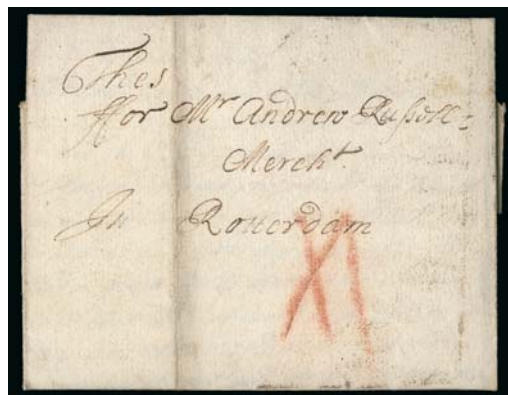 Thes
ffor Mr Andrew Russell
Mercht
In Rotterdam
XI